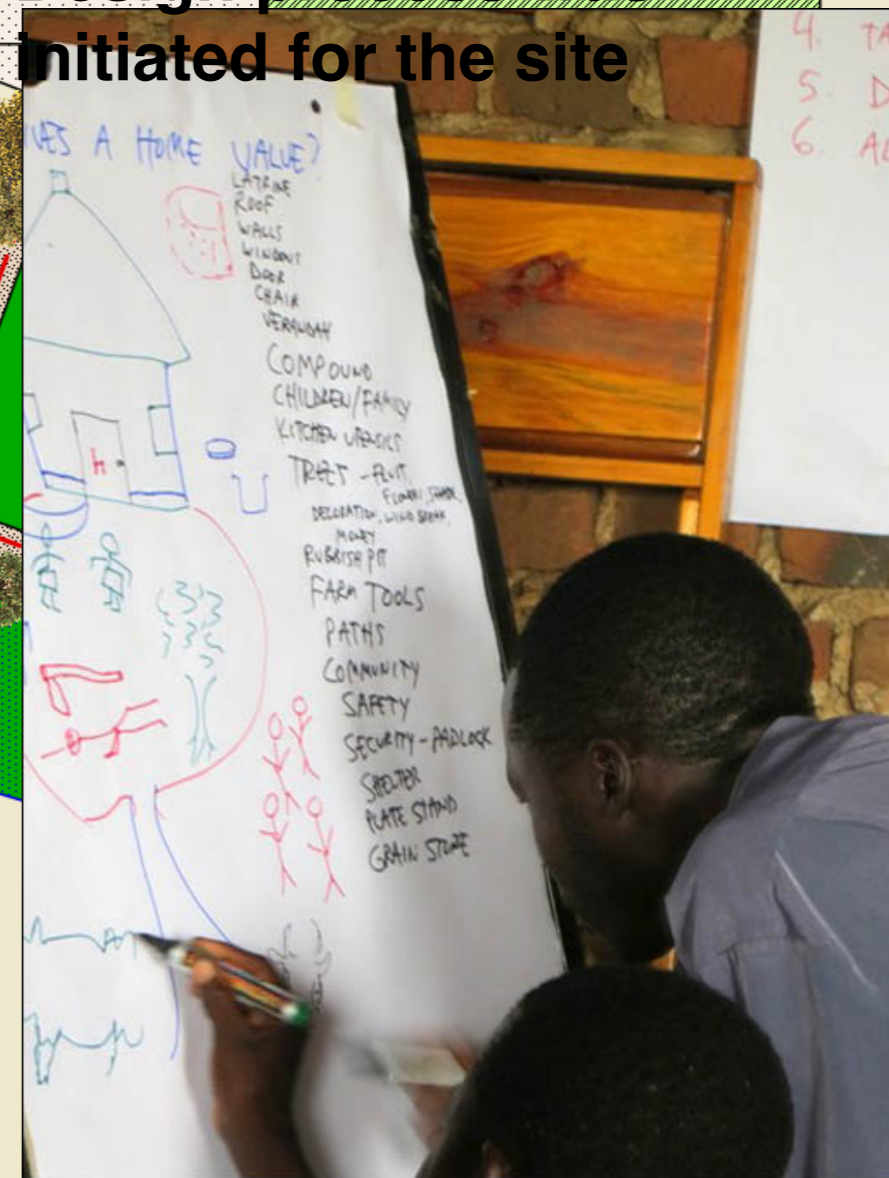 initiated for the site
A HOME VALUE?
LATRINE
ROOF
WALLS
WINDOWS
DOOR
CHAIR
VERANDAH
COMPOUND
CHILDREN/FAMILY
KITCHEN UTENSILS
TREES - FRUIT,
FLOWERS, SHADE,
DECORATION, WIND BREAK,
MONEY
RUBBISH PIT
FARM TOOLS
PATHS
COMMUNITY
SAFETY
SECURITY - PADLOCK
SHELTER
PLATE STAND
GRAIN STORE
4.
5.
6.